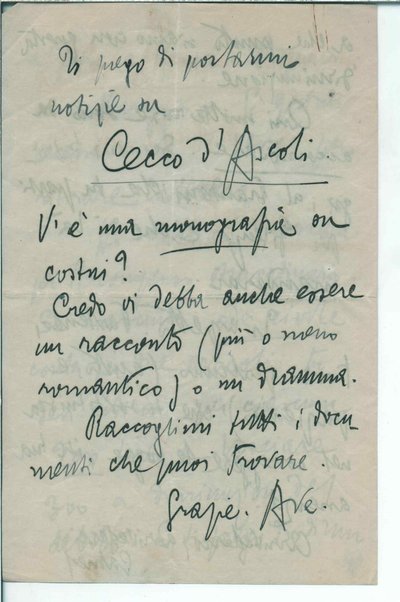 Ti prego di portarmi
notizie su
Cecco d'Ascoli.
V'è una monografia su
costui?
Credo vi debba anche essere
un racconto (più o meno
romantico) o un dramma.
Raccoglimi tutti i docu
menti che puoi trovare.
Grazie. Ave.